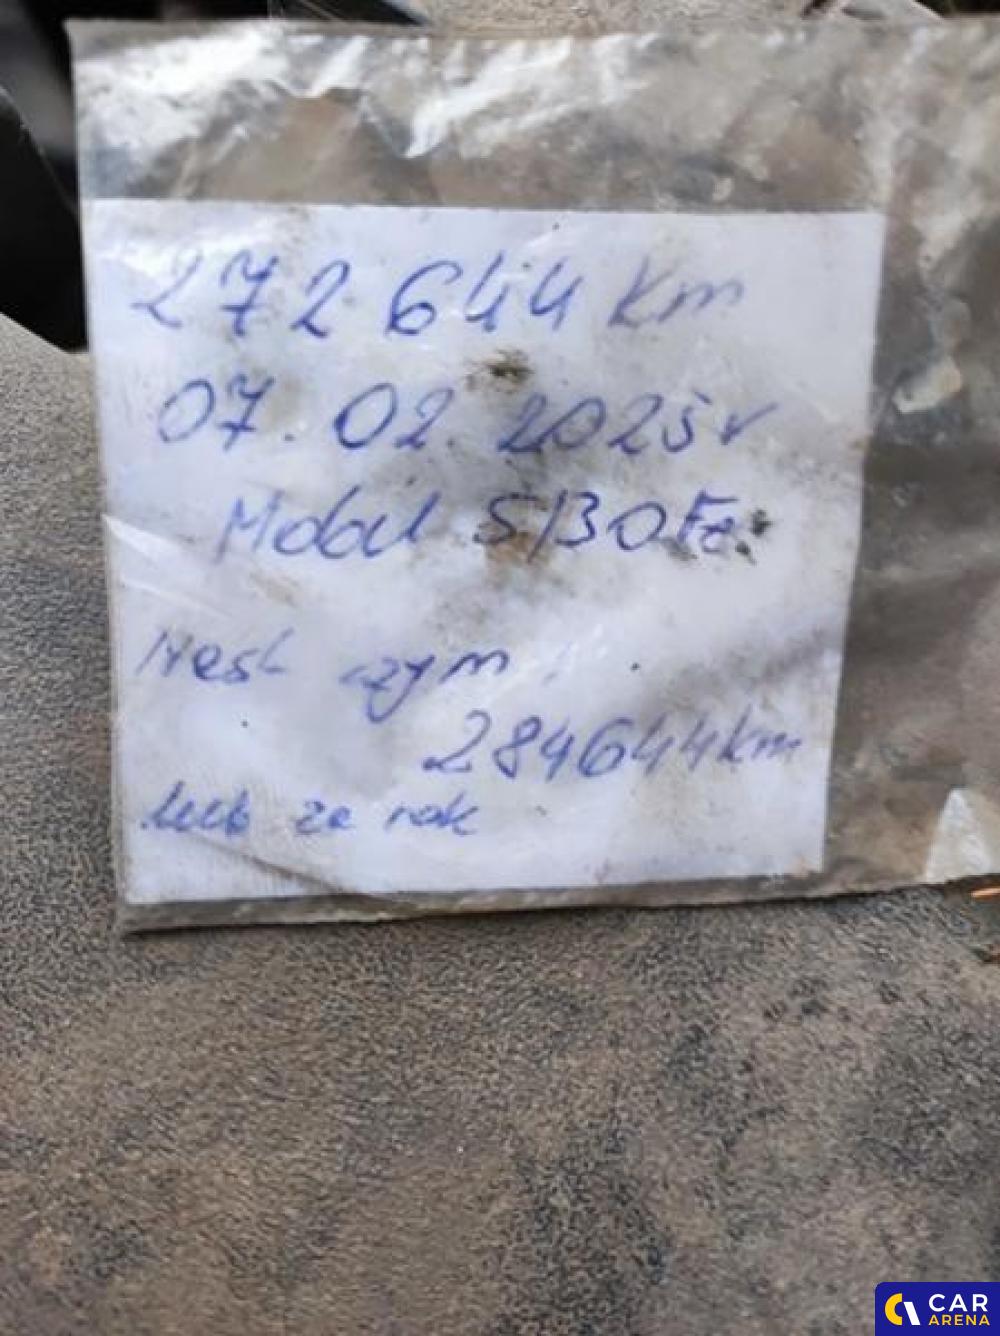 272 644 km
07.02.2025r
Mobil 5/30 Fe.
Nast wym.
284644km
lub za rok
CAR
ARENA